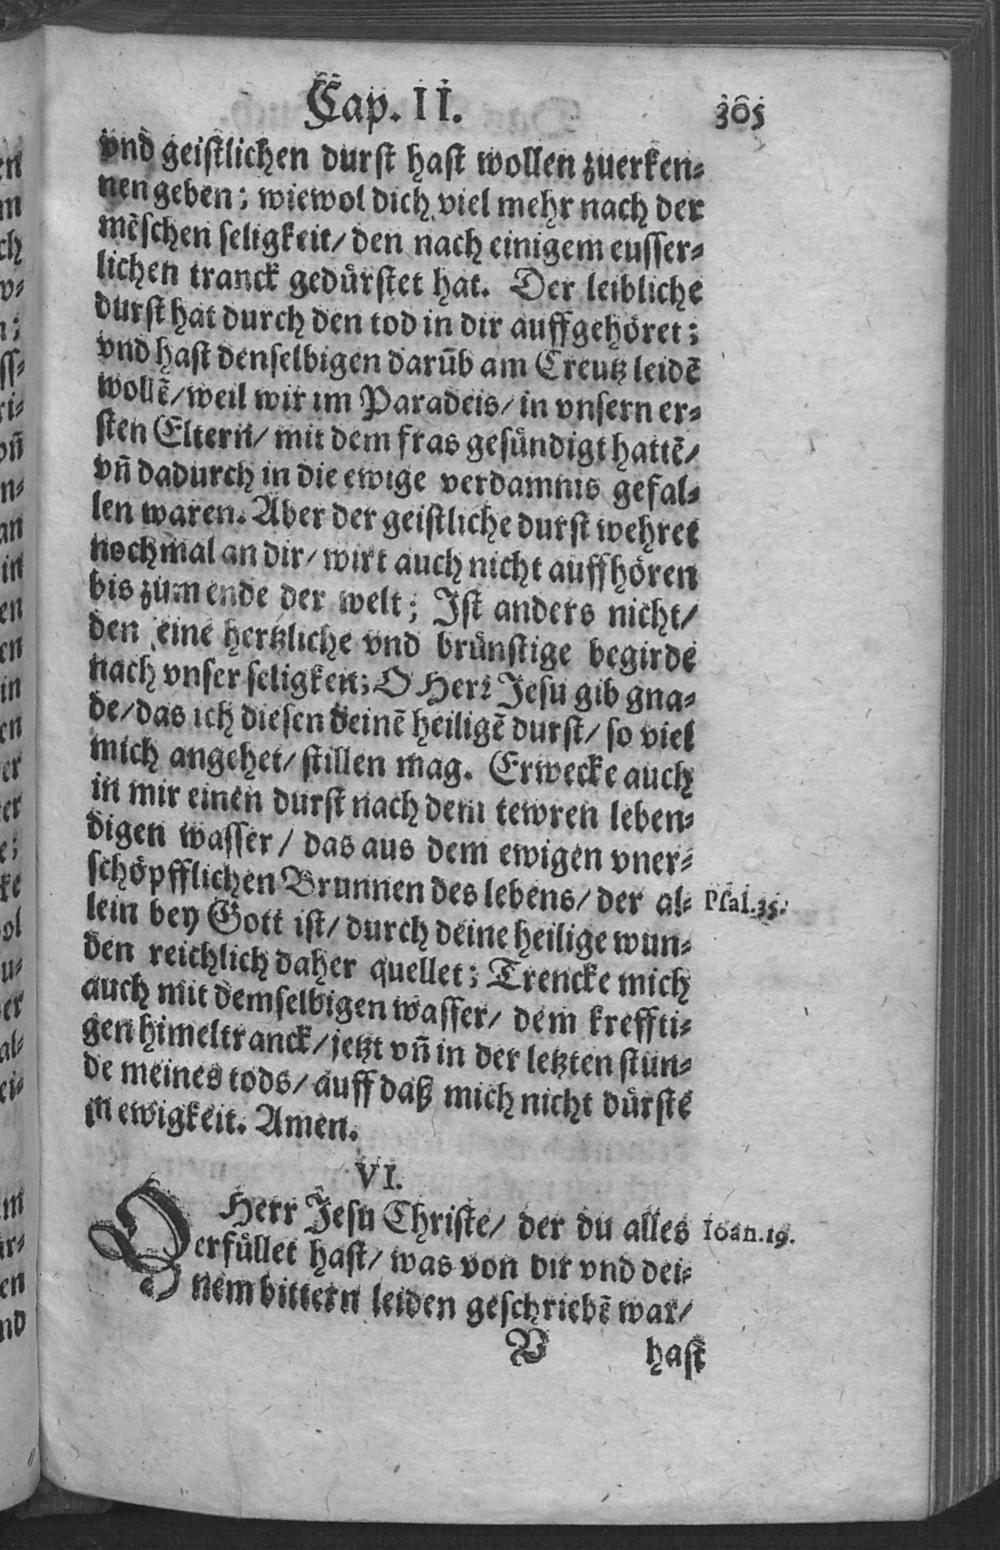 Cap. II. 305
vnd geistlichen durst hast wollen zuerken-
nen geben; wiewol dich viel mehr nach der
mẽschen seligkeit/ den nach einigem eusser-
lichen tranck gedürstet hat. Der leibliche
durst hat durch den tod in dir auffgehöret;
vnd hast denselbigen darüb am Creutz leidẽ
wollẽ/ weil wir im Paradeis/ in vnsern er-
sten Eltern/ mit dem fras gesündigt hattẽ/
vñ dadurch in die ewige verdamnis gefal-
len waren. Aber der geistliche durst wehret
nochmal an dir/ wirt auch nicht auffhören
bis zum ende der welt; Ist anders nicht/
den eine hertzliche vnd brünstige begirde
nach vnser seligkeit; O Herr Jesu gib gna-
de/ das ich diesen deinẽ heiligẽ durst/ so viel
mich angehet/ stillen mag. Erwecke auch
in mir einen durst nach dem tewren leben-
digen wasser/ das aus dem ewigen vner-
schöpfflichen Brunnen des lebens/ der al- Psal.35.
lein bey Gott ist/ durch deine heilige wun-
den reichlich daher quellet; Trencke mich
auch mit demselbigen wasser/ dem kreffti-
gen himeltranck/ jetzt vñ in der letzten stun-
de meines tods/ auff daß mich nicht dürste
in ewigkeit. Amen.
VI.
O Herr Jesu Christe/ der du alles Ioan.19.
erfüllet hast/ was von dir vnd dei-
nem bittern leiden geschriebẽ war/
V hast